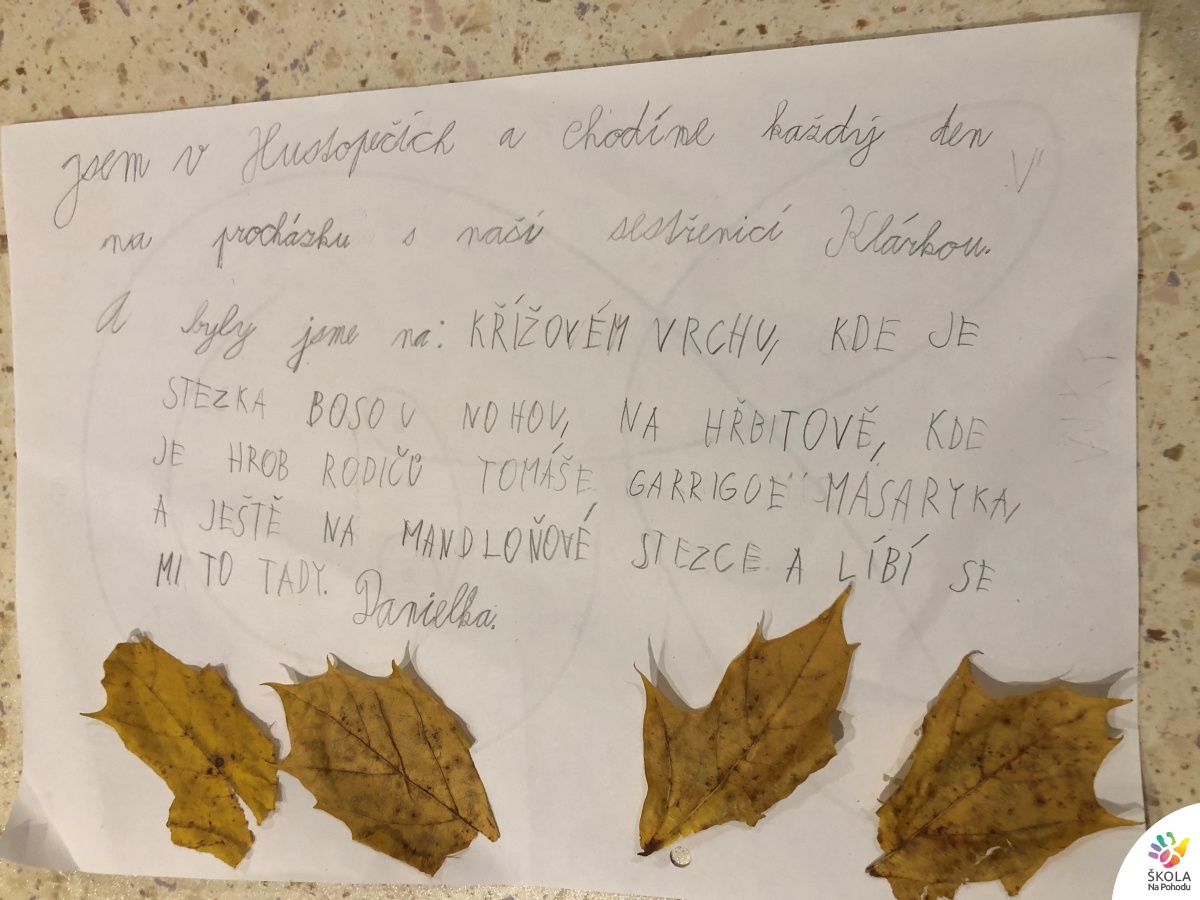 jsem v Hustopečích a chodíme každý den
na procházku s naší sestřenicí Klárkou.
A byly jsme na: KŘÍŽOVÉM VRCHU, KDE JE
STEZKA BOSOU NOHOU, NA HŘBITOVĚ, KDE
JE HROB RODIČŮ TOMÁŠE GARRIGOE MASARYKA,
A JEŠTĚ NA MANDLOŇOVÉ STEZCE A LÍBÍ SE
MI TO TADY. Danielka.
ŠKOLA
Na Pohodu